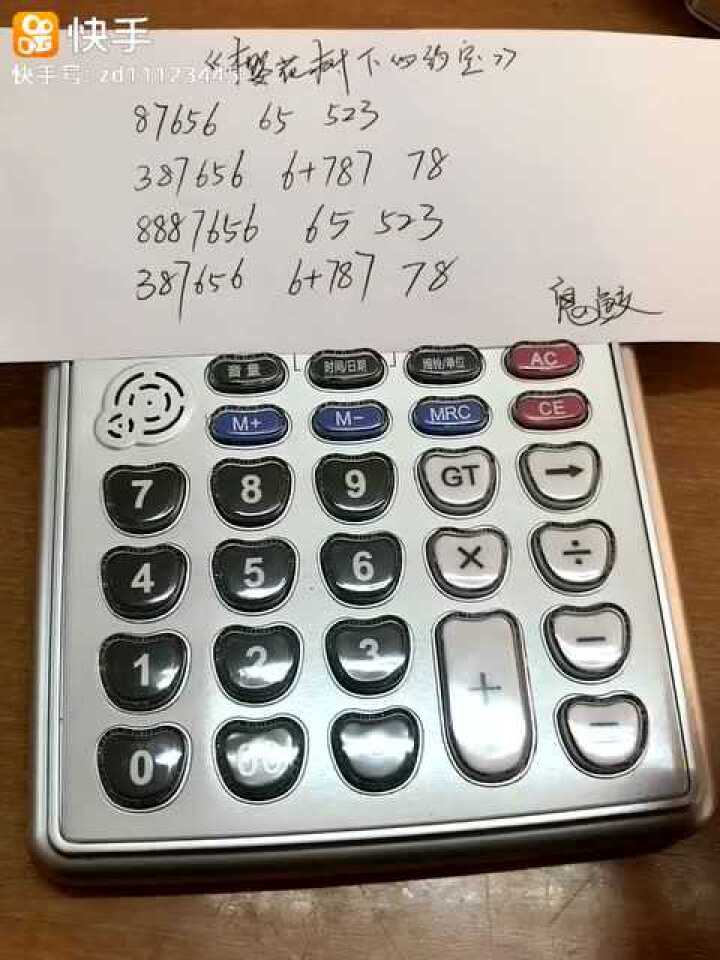 快手
快手号: zd11123445
《樱花树下的约定》
87656 65 523
387656 6+787 78
8887656 65 523
387656 6+787 78
音量 时间/日期 AC
M+ M- MRC CE
7 8 9 GT →
4 5 6 × ÷
1 2 3 + −
0 00